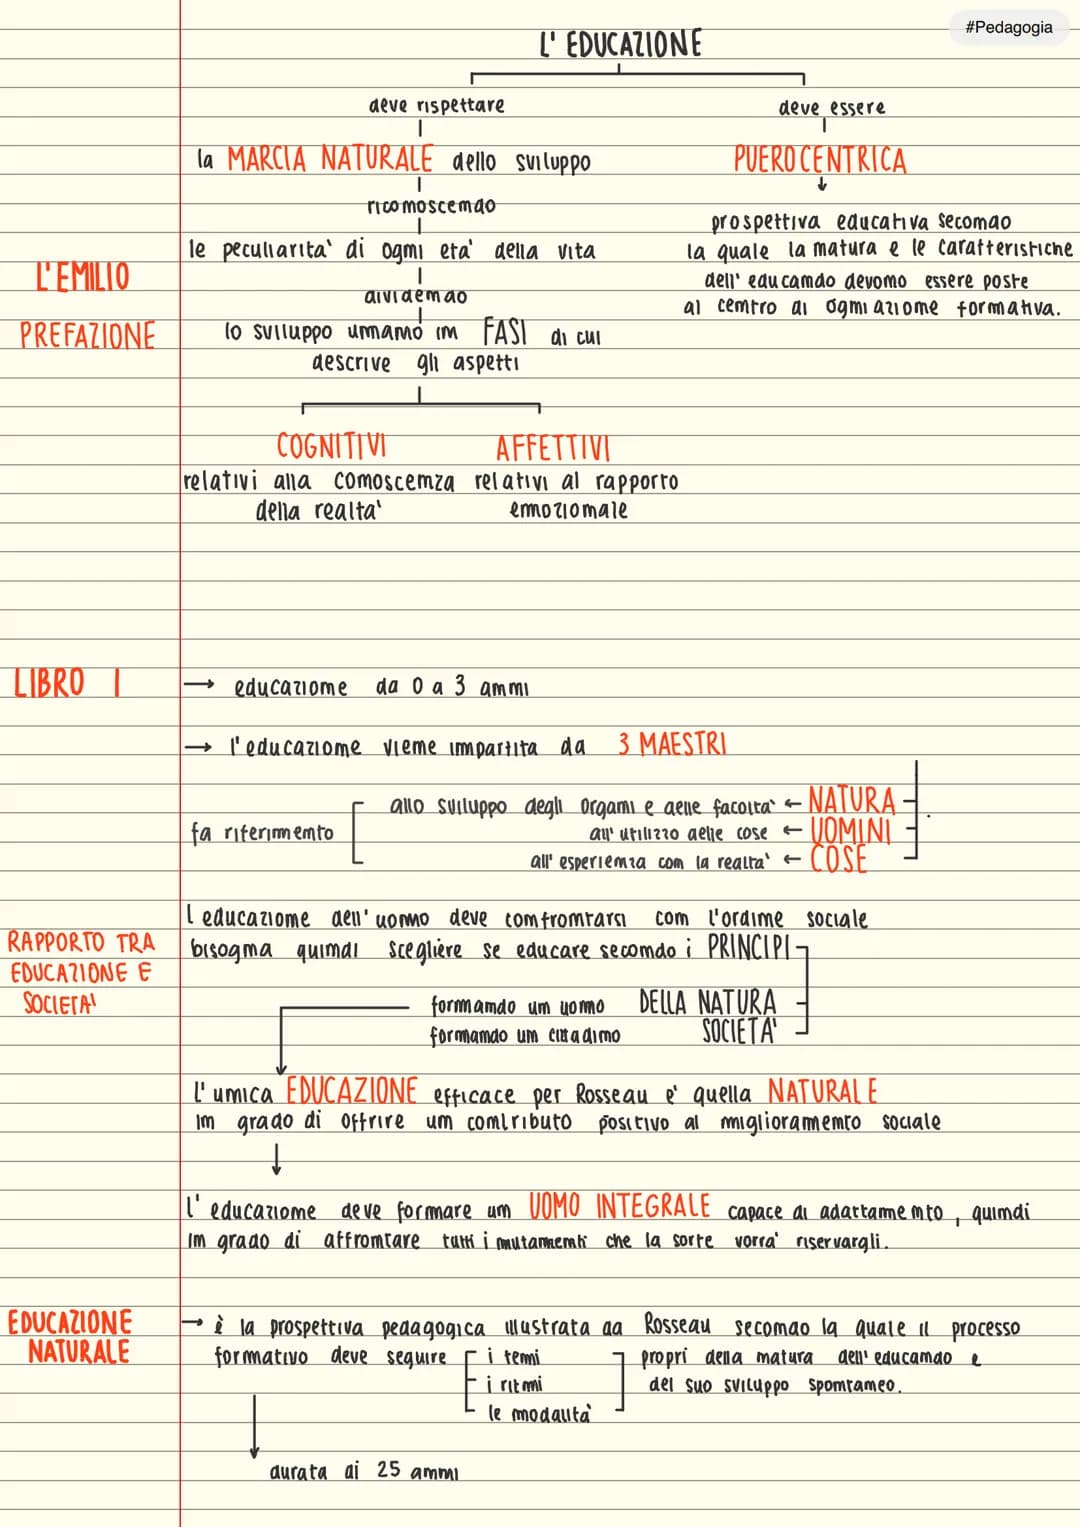 #Pedagogia
L' EDUCAZIONE
deve rispettare
deve essere
la MARCIA NATURALE dello sviluppo
PUEROCENTRICA
riconoscendo
prospettiva educativa secondo
le peculiarita' di ogni eta' della vita
la quale la natura e le caratteristiche
L'EMILIO
dell' educando devono essere poste
dividendo
al centro di ogni azione formativa.
PREFAZIONE
lo sviluppo umano in FASI di cui
descrive gli aspetti
COGNITIVI
AFFETTIVI
relativi alla conoscenza
relativi al rapporto
della realta'
emozionale
LIBRO I
→ educazione da 0 a 3 anni
→ l'educazione viene impartita da 3 MAESTRI
allo sviluppo degli organi e delle facolta' ← NATURA
fa riferimento
all' utilizzo delle cose ← UOMINI
all' esperienza con la realta' ← COSE
l educazione dell' uomo deve confrontarsi con l'ordine sociale
RAPPORTO TRA
bisogna quindi scegliere se educare secondo i PRINCIPI
EDUCAZIONE E
SOCIETA'
formando un uomo DELLA NATURA
formando un cittadino SOCIETA'
L'unica EDUCAZIONE efficace per Rosseau e' quella NATURALE
in grado di offrire un contributo positivo al miglioramento sociale
l' educazione deve formare un UOMO INTEGRALE capace di adattamento, quindi
in grado di affrontare tutti i mutamenti che la sorte vorra' riservargli.
EDUCAZIONE
NATURALE
→ è la prospettiva pedagogica illustrata da Rosseau secondo la quale il processo
formativo deve seguire i temi propri della natura dell' educando e
i ritmi del suo sviluppo spontaneo.
le modalita'
durata di 25 anni